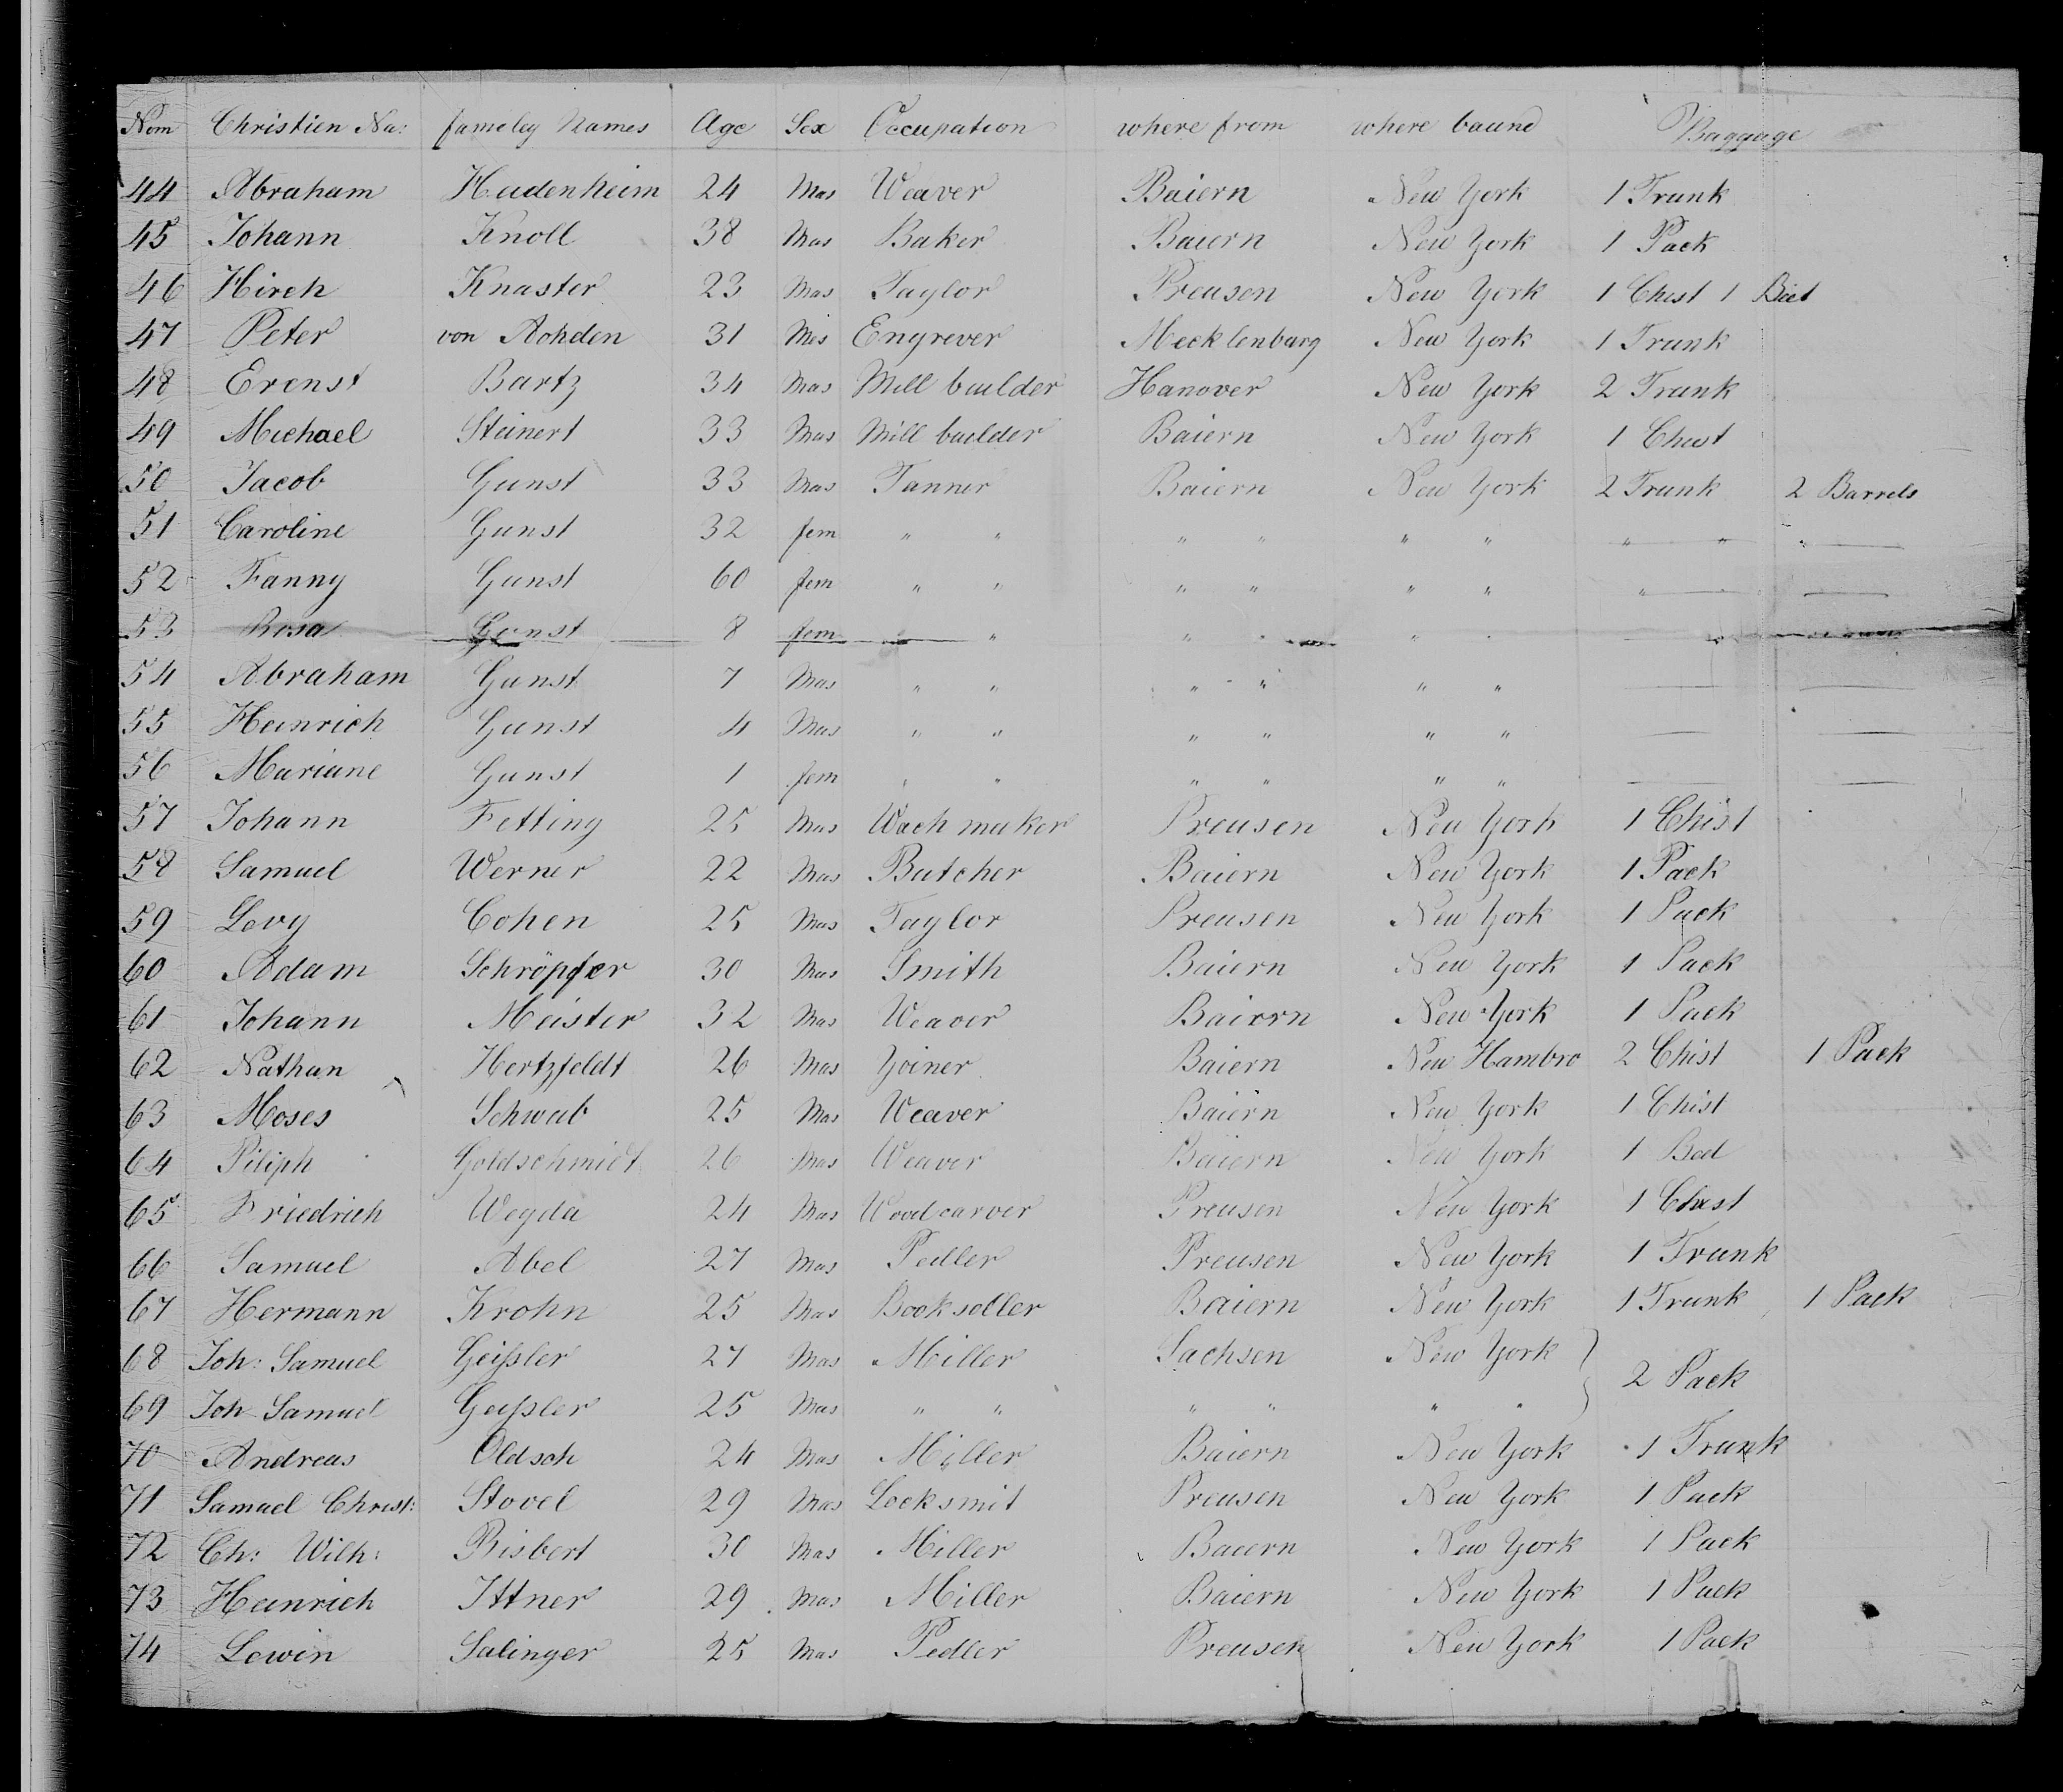 Nom Christien Na: fameley Names Age Sex Occupation where from where baund Baggage
44 Abraham Hudenheim 24 Mas Weaver Baiern New York 1 Trunk
45 Johann Knoll 38 Mas Baker Baiern New York 1 Pack
46 Hirch Knaster 23 Mas Taylor Preusen New York 1 Chest 1
47 Peter von Rohden 31 Mas Engrever Mecklenburg New York 1 Trunk
48 Erenst Bartz 34 Mas Mill builder Hanover New York 2 Trunk
49 Michael Steinert 33 Mas Mill builder Baiern New York 1 Chest
50 Jacob Gunst 33 Mas Tanner Baiern New York 2 Trunk 2 Barrels
51 Caroline Gunst 32 fem " " " " " " " "
52 Fanny Gunst 60 fem " " " " " " "
53 Rosa Gunst 8 fem " " " " " "
54 Abraham Gunst 7 Mas " " " " " "
55 Heinrich Gunst 4 Mas " " " " " "
56 Mariane Gunst 1 fem " " " " " "
57 Johann Fetting 25 Mas Wach maker Preusen New York 1 Chist
58 Samuel Werner 22 Mas Butcher Baiern New York 1 Pack
59 Levy Cohen 25 Mas Taylor Preusen New York 1 Pack
60 Adam Schröpfer 30 Mas Smith Baiern New York 1 Pack
61 Johann Meister 32 Mas Weaver Baiern New York 1 Pack
62 Nathan Hertzfeldt 26 Mas Yoiner Baiern New Hambro 2 Chist 1 Pack
63 Moses Schwab 25 Mas Weaver Baiern New York 1 Chist
64 Piliph Goldschmidt 26 Mas Weaver Baiern New York 1 Bed
65 Friedrich Weyda 24 Mas Woodcarver Preusen New York 1 Chest
66 Samuel Abel 27 Mas Pedler Preusen New York 1 Trunk
67 Hermann Krohn 25 Mas Booksoller Baiern New York 1 Trunk 1 Pack
68 Joh: Samuel Geißler 27 Mas Miller Sachsen New York } 2 Pack
69 Joh Samuel Geißler 25 Mas " " " " " "
70 Andreas Oldsch 24 Mas Miller Baiern New York 1 Trunk
71 Samuel Christ: Stovel 29 Mas Locksmit Preusen New York 1 Pack
72 Ch: Wilh: Bisbert 30 Mas Miller Baiern New York 1 Pack
73 Heinrich Ittner 29 Mas Miller Baiern New York 1 Pack
74 Lewin Salinger 25 Mas Pedler Preusen New York 1 Pack